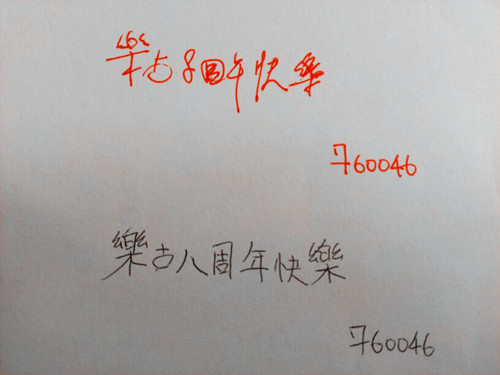 樂古8周年快樂
760046
樂古八周年快樂
760046